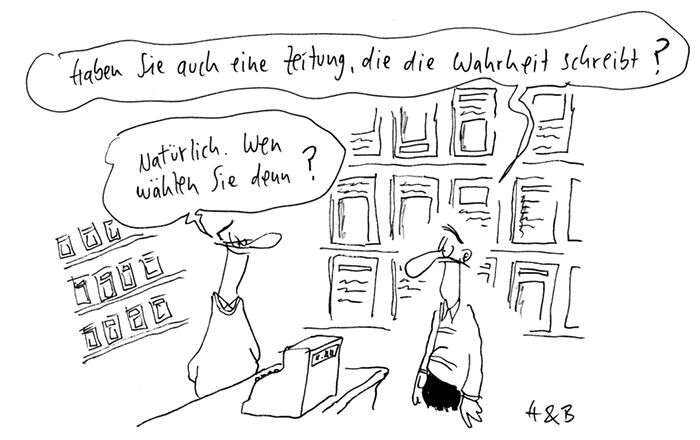 Haben Sie auch eine Zeitung, die die Wahrheit schreibt?
Natürlich. Wen
wählten Sie denn?
H & B